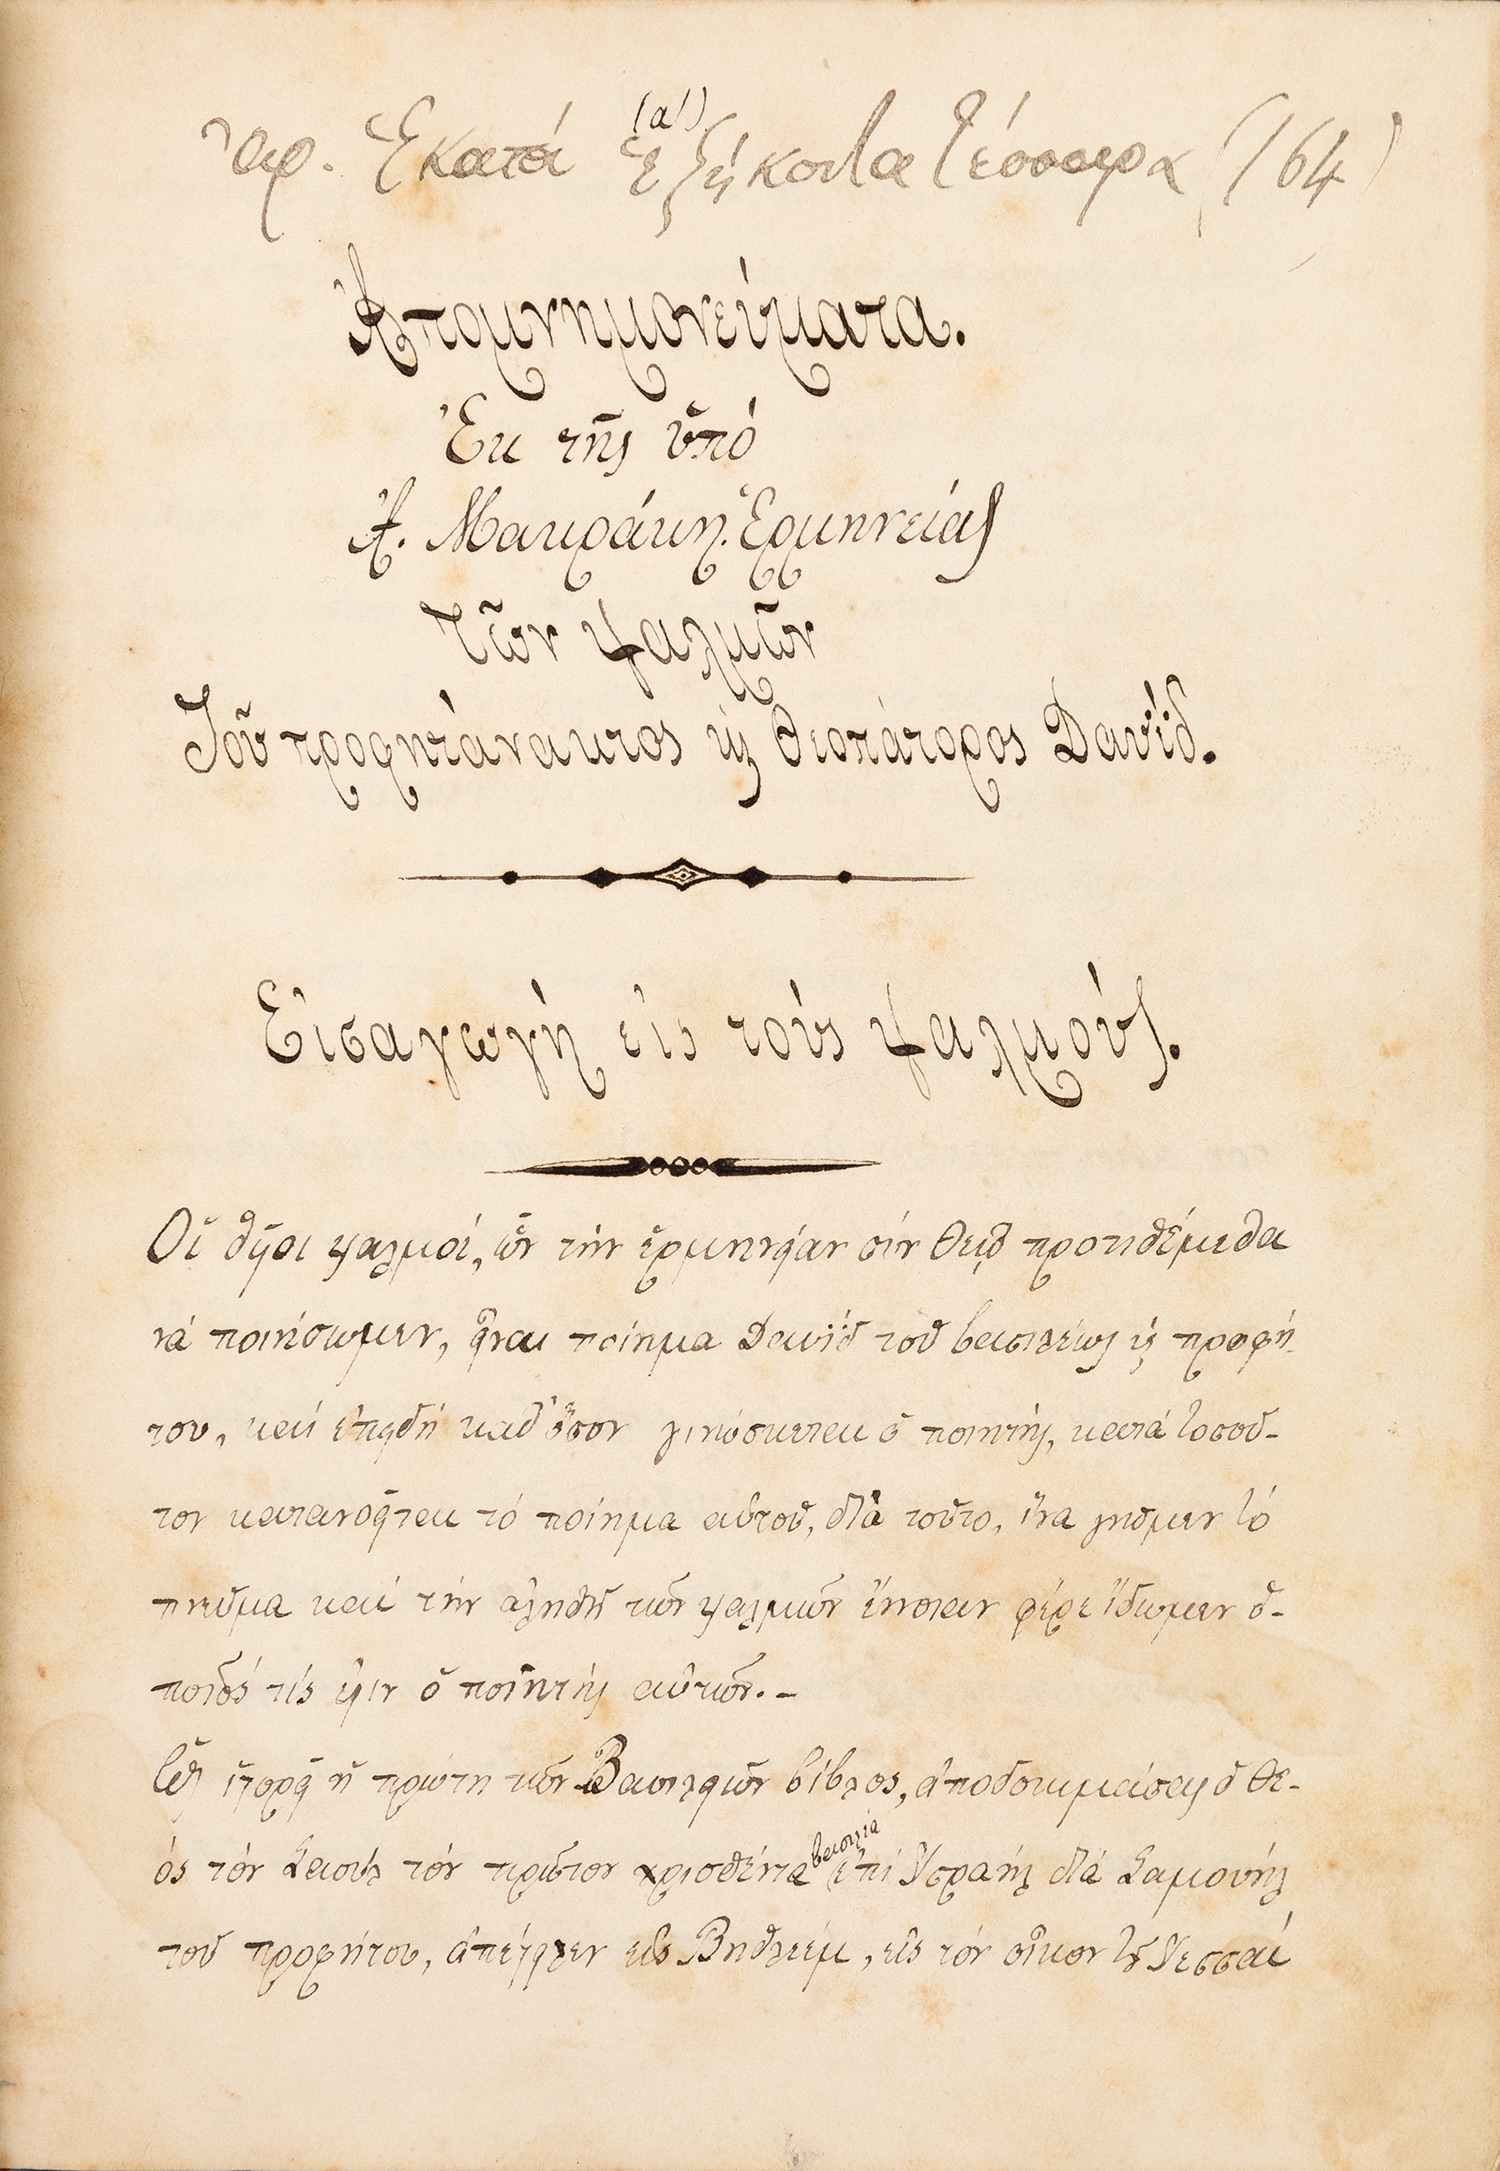 (α')
Ἀρ. Ἑκατό ἑξήκοντα τέσσερα (164)
Ἀπομνημονεύματα.
Ἐκ τῆς ὑπό
Ἀ. Μακράκη Ἑρμηνείας
τῶν ψαλμῶν
Τοῦ προφητάνακτος ϗ θεοπάτορος Δαυΐδ.
Εἰσαγωγή εἰς τούς ψαλμούς.
Οἱ θεῖοι ψαλμοί, ὧν τήν ἑρμηνείαν σύν Θεῷ προτιθέμεθα
νά ποιήσωμεν, εἶναι ποίημα Δαυΐδ τοῦ βασιλέως ϗ προφή-
του, καί ἐπειδή καθ' ὅσον γινώσκεται ὁ ποιητής, κατά τοσοῦ-
τον κατανοεῖται τό ποίημα αὐτοῦ, διά τοῦτο, ἵνα γνῶμεν τό
πνεῦμα καί τήν ἀληθῆ τῶν ψαλμῶν ἔννοιαν φέρε ἴδωμεν ὁ-
ποῖός τίς ἐστιν ὁ ποιητής αὐτῶν.-
Ὡς ἱστορεῖ ἡ πρώτη τῶν Βασιλειῶν βίβλος, ἀποδοκιμάσας ὁ Θε-
ός τόν Σαούλ τόν πρῶτον χρισθέντα βασιλέα ἐπί Ἰσραήλ διά Σαμουήλ
τοῦ προφήτου, ἀπέστειλεν εἰς Βηθλεέμ, εἰς τόν οἶκον τοῦ Ἰεσσαί